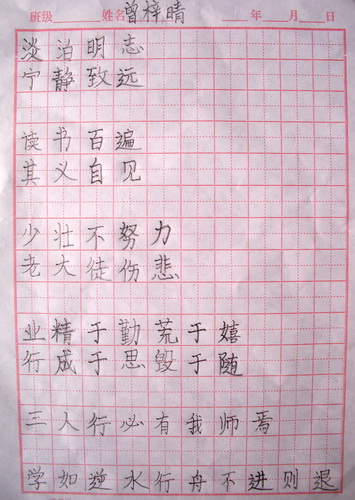 班级 姓名 曾梓晴 年 月 日
淡泊明志
宁静致远
读书百遍
其义自见
少壮不努力
老大徒伤悲
业精于勤荒于嬉
行成于思毁于随
三人行必有我师焉
学如逆水行舟不进则退